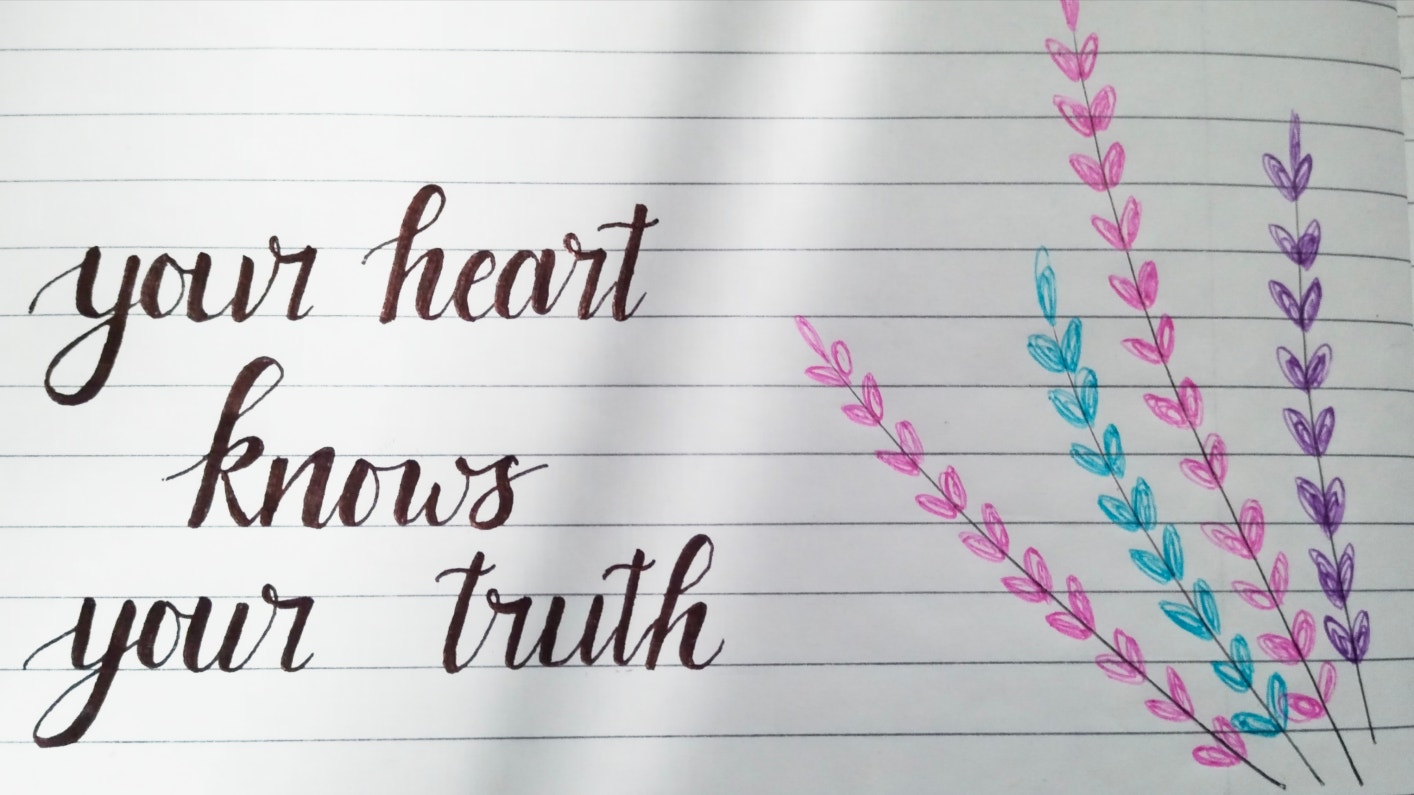 your heart
knows
your truth